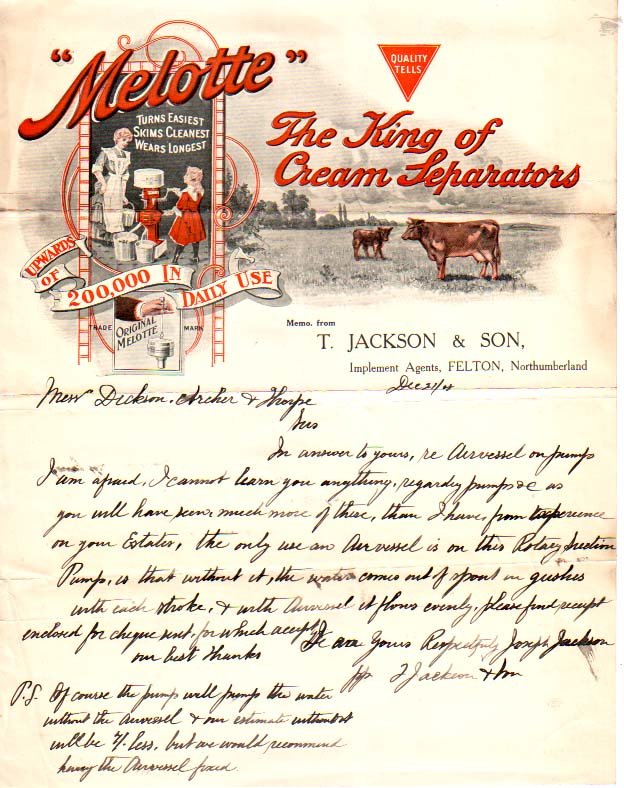 "Melotte"
QUALITY
TELLS
TURNS EASIEST
SKIMS CLEANEST
WEARS LONGEST
The King of
Cream Separators
UPWARDS
OF 200,000 IN DAILY USE
TRADE MARK
ORIGINAL
MELOTTE
Memo. from
T. JACKSON & SON,
Implement Agents, FELTON, Northumberland
Dec 21/
Messrs Dickson, Archer & Thorpe
Sirs
In answer to yours, re Airvessel on pump
I am afraid, I cannot learn you anything, regardig pumps &c as
you will have seen much more of these, than I have, from experience
on your Estates, the only use an Airvessel is on this Rotary Suction
Pump, is that without it, the water comes out of spout in gushes
with each stroke, & with Airvessel it flows evenly, please find receipt
enclosed for cheque sent, for which accept
our best thanks
We are Yours Respectfuly Joseph Jackson
pp T Jackson & Son
P.S. Of course the pump will pump the water
without the airvessel & our estimate without it
will be 7/- less, but we would recommend
having the Airvessel fixed.